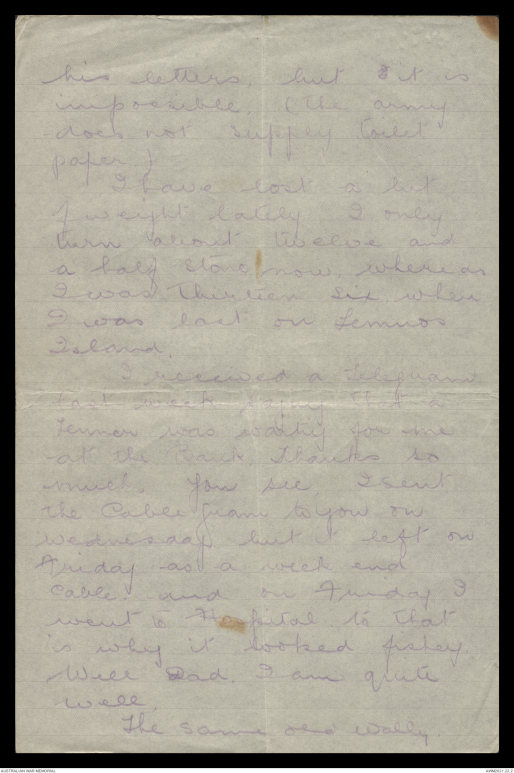 his letters, but it is
impossible. (The army
does not supply toilet
paper)
I have lost a bit
of weight lately I only
turn about twelve and
a half stone now, whereas
I was thirteen six when
I was last on Lemnos
Island.
I received a telegram
last week saying that a
Tenner was waiting for me
at the bank, Thanks so
much. You see I sent
the Cable gram to you on
Wednesday but it left on
Friday as a week end
cable. and on Friday I
went to Hospital. so that
is why it looked fishey.
Well Dad. I am quite
well.
The same old Wally.
AUSTRALIAN WAR MEMORIAL